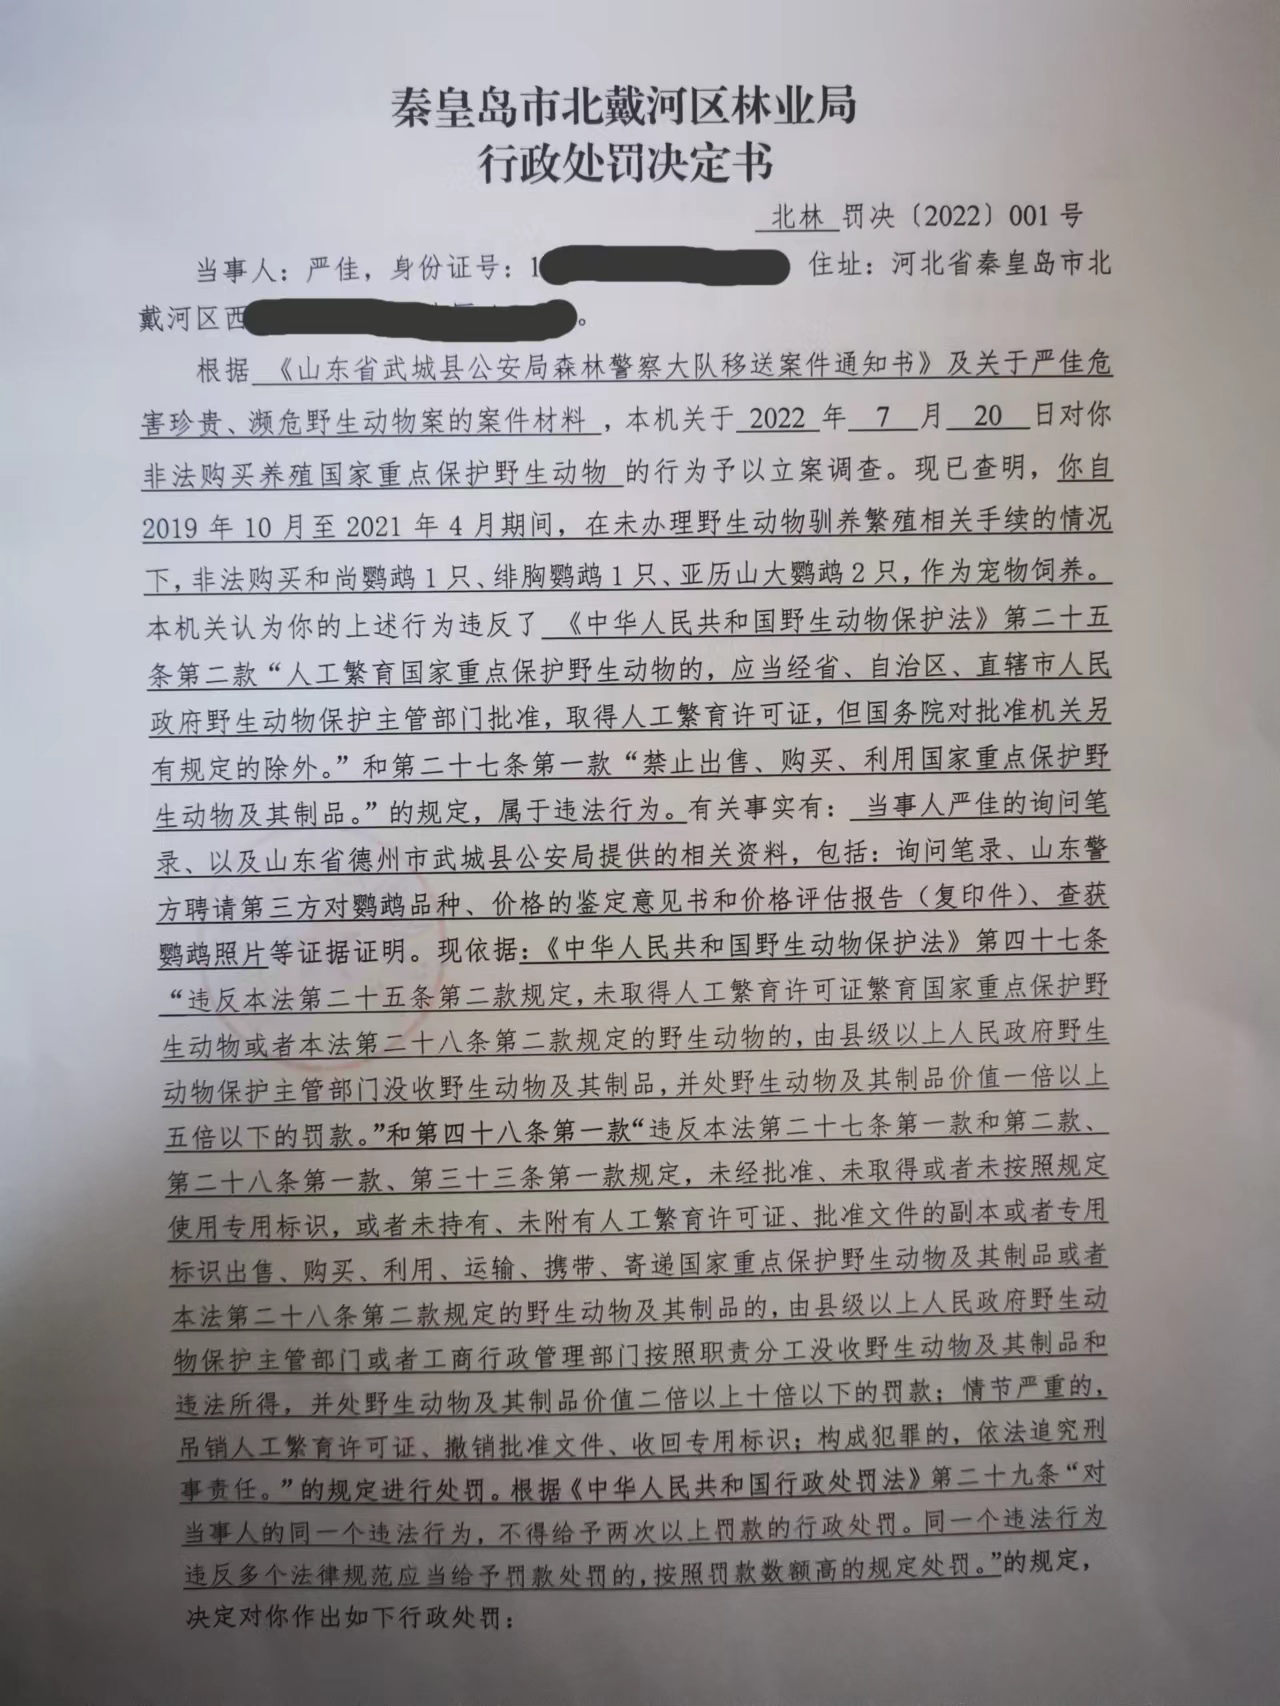 秦皇岛市北戴河区林业局
行政处罚决定书
北林 罚决〔2022〕001 号
当事人：严佳，身份证号：1 住址：河北省秦皇岛市北
戴河区西。
根据 《山东省武城县公安局森林警察大队移送案件通知书》及关于严佳危
害珍贵、濒危野生动物案的案件材料 ，本机关于 2022 年 7 月 20 日对你
非法购买养殖国家重点保护野生动物 的行为予以立案调查。现已查明，你自
2019 年 10 月至 2021 年 4 月期间，在未办理野生动物驯养繁殖相关手续的情况
下，非法购买和尚鹦鹉 1 只、绯胸鹦鹉 1 只、亚历山大鹦鹉 2 只，作为宠物饲养。
本机关认为你的上述行为违反了 《中华人民共和国野生动物保护法》第二十五
条第二款“人工繁育国家重点保护野生动物的，应当经省、自治区、直辖市人民
政府野生动物保护主管部门批准，取得人工繁育许可证，但国务院对批准机关另
有规定的除外。”和第二十七条第一款“禁止出售、购买、利用国家重点保护野
生动物及其制品。”的规定，属于违法行为。有关事实有： 当事人严佳的询问笔
录、以及山东省德州市武城县公安局提供的相关资料，包括：询问笔录、山东警
方聘请第三方对鹦鹉品种、价格的鉴定意见书和价格评估报告（复印件）、查获
鹦鹉照片等证据证明。现依据：《中华人民共和国野生动物保护法》第四十七条
“违反本法第二十五条第二款规定，未取得人工繁育许可证繁育国家重点保护野
生动物或者本法第二十八条第二款规定的野生动物的，由县级以上人民政府野生
动物保护主管部门没收野生动物及其制品，并处野生动物及其制品价值一倍以上
五倍以下的罚款。”和第四十八条第一款“违反本法第二十七条第一款和第二款、
第二十八条第一款、第三十三条第一款规定，未经批准、未取得或者未按照规定
使用专用标识，或者未持有、未附有人工繁育许可证、批准文件的副本或者专用
标识出售、购买、利用、运输、携带、寄递国家重点保护野生动物及其制品或者
本法第二十八条第二款规定的野生动物及其制品的，由县级以上人民政府野生动
物保护主管部门或者工商行政管理部门按照职责分工没收野生动物及其制品和
违法所得，并处野生动物及其制品价值二倍以上十倍以下的罚款；情节严重的，
吊销人工繁育许可证、撤销批准文件、收回专用标识；构成犯罪的，依法追究刑
事责任。”的规定进行处罚。根据《中华人民共和国行政处罚法》第二十九条“对
当事人的同一个违法行为，不得给予两次以上罚款的行政处罚。同一个违法行为
违反多个法律规范应当给予罚款处罚的，按照罚款数额高的规定处罚。”的规定，
决定对你作出如下行政处罚：